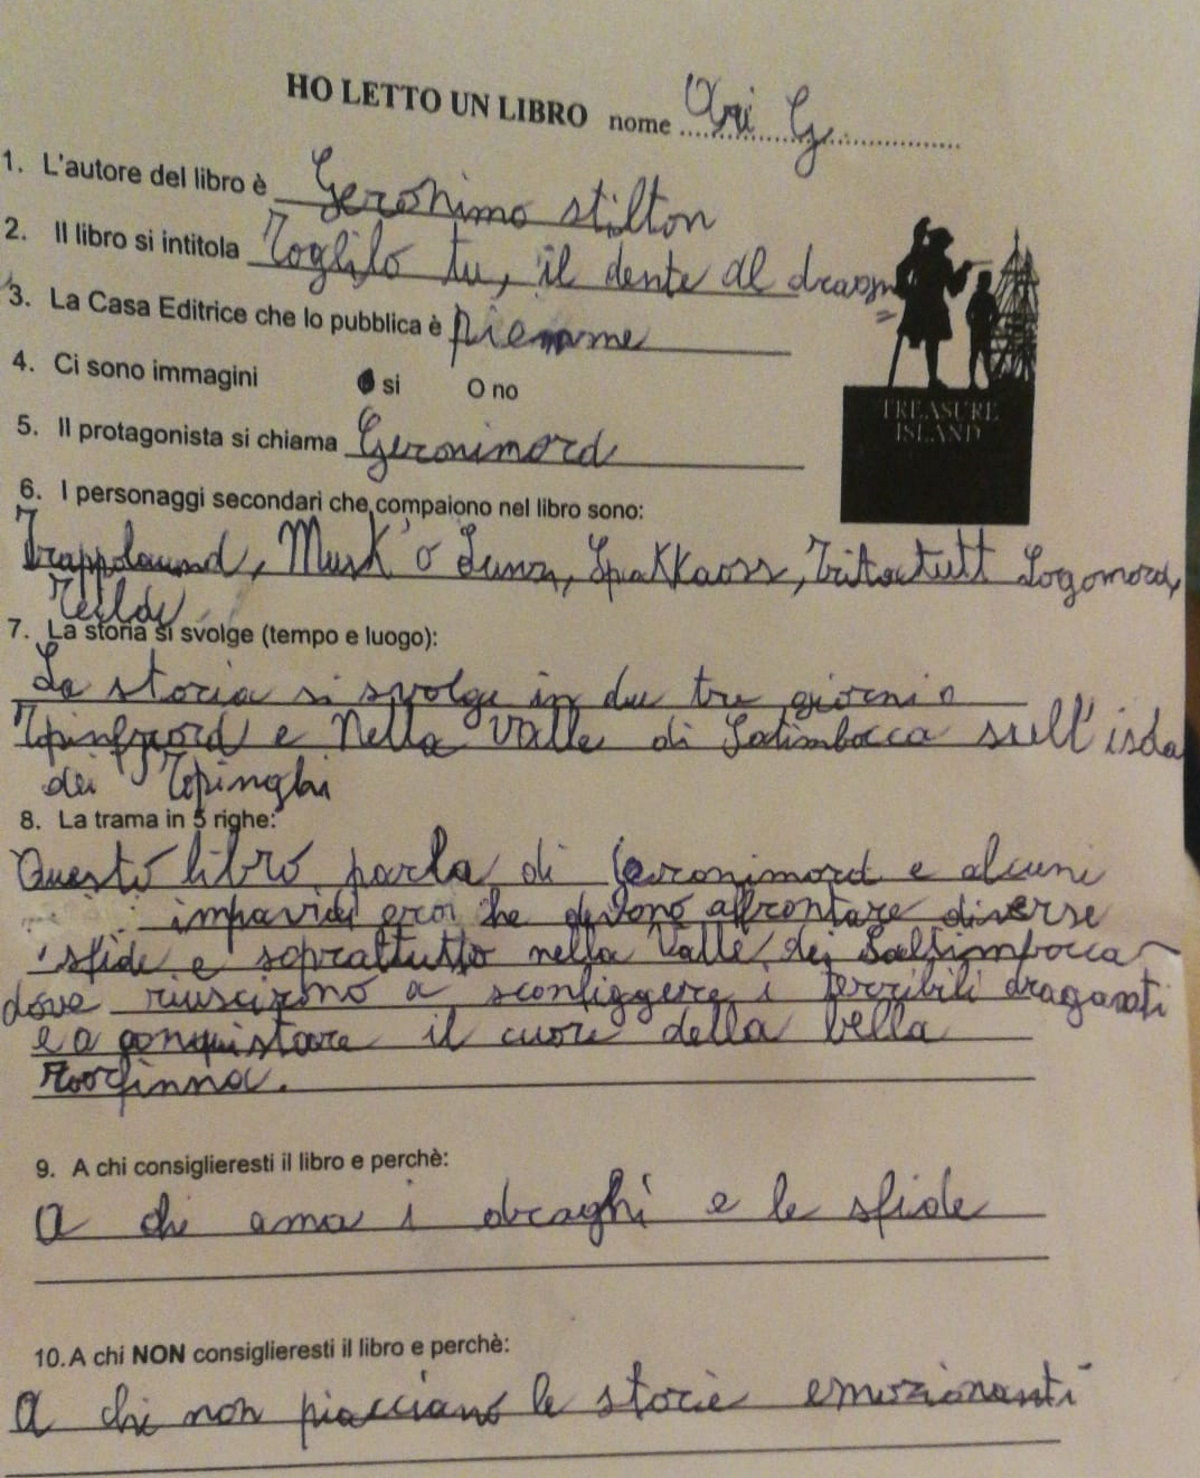 HO LETTO UN LIBRO nome Ari G.
1. L'autore del libro è Geronimo stilton
2. Il libro si intitola Toglilo tu, il dente al drago
3. La Casa Editrice che lo pubblica è piemme
4. Ci sono immagini si O no
TREASURE
ISLAND
5. Il protagonista si chiama Geronimord
6. I personaggi secondari che compaiono nel libro sono:
Trappolaund, Musk'o Spakkaoss, Tritatutt Logomord,
7. La storia si svolge (tempo e luogo):
La storia si svolge in due tre giorni a
e Nella Valle di sull'isola
dei Topinghi
8. La trama in 5 righe:
Questo libro parla di Geronimord e alcuni
impavidi eroi che devono affrontare diverse
sfide e soprattutto nella Valle dei Saltimbocca
dove riuscirono a sconfiggere i terribili
e a conquistare il cuore della bella
9. A chi consiglieresti il libro e perchè:
A chi ama i draghi e le sfide
10. A chi NON consiglieresti il libro e perchè:
A chi non piacciano le storie emozionanti